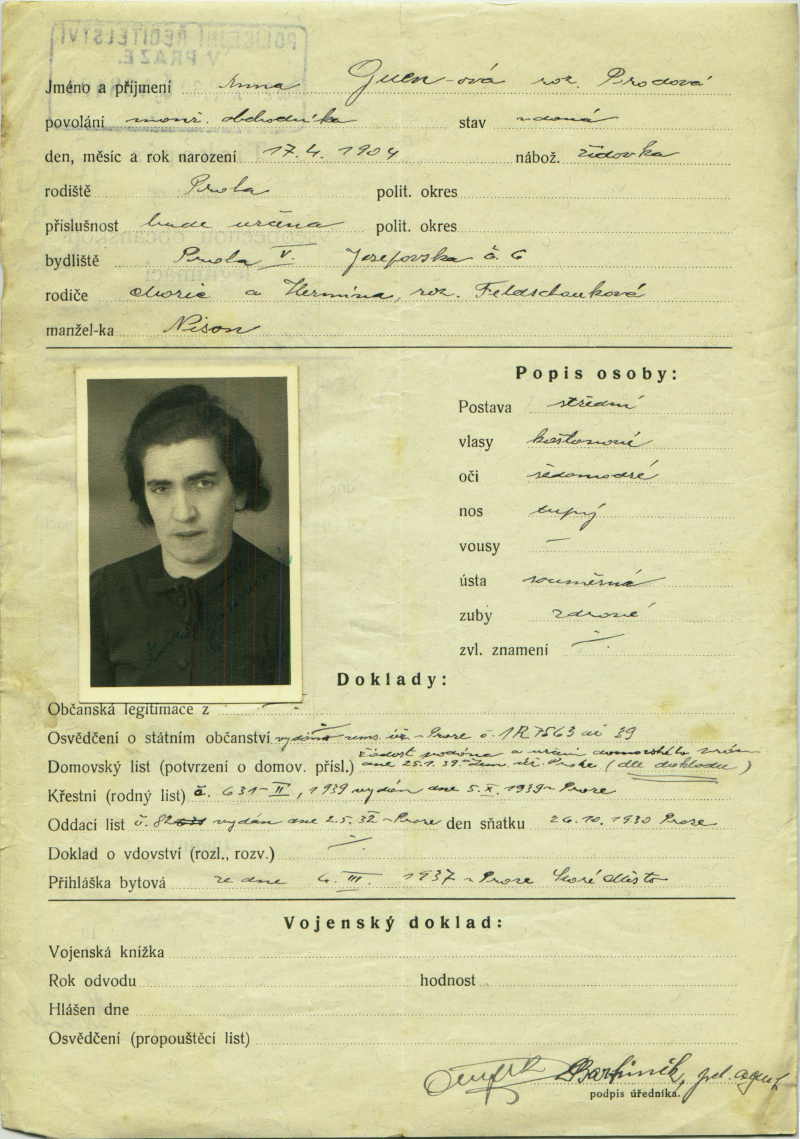 POLICEJNÍ ŘEDITELSTVÍ
V PRAZE.
Jméno a příjmení Anna Guen-ová roz. Brodová
povolání manž. obchodníka stav vdaná
den, měsíc a rok narození 17.4. 1904 nábož. židovka
rodiště Praha polit. okres
příslušnost bude určena polit. okres
bydliště Praha V. Josefovska č. 6
rodiče Moric a Hermina, roz.
manžel-ka Nison
Popis osoby:
Postava střední
vlasy kaštanové
oči šedomodré
nos tupý
vousy —
ústa souměrná
zuby zdravé
zvl. znamení
Doklady:
Občanská legitimace z
Osvědčení o státním občanství vydáno zems. úř. v Praze č. 1R 7563 ai 39
Domovský list (potvrzení o domov. přísl.) žádost podána o domovského práva
dne 25.1.39 zem. úř. Praha (dle dokladu)
Křestní (rodný list) č. 631-II, 1939 vydán dne 5.X.1939 v Praze
Oddací list č. 82 vydán dne 2.5.32 v Praze den sňatku 26.10.1930 Praze
Doklad o vdovství (rozl., rozv.)
Přihláška bytová ze dne 4. III. 1937 v Praze Staré Město
Vojenský doklad:
Vojenská knížka
Rok odvodu hodnost
Hlášen dne
Osvědčení (propouštěcí list)
pol. agent
podpis úředníka.